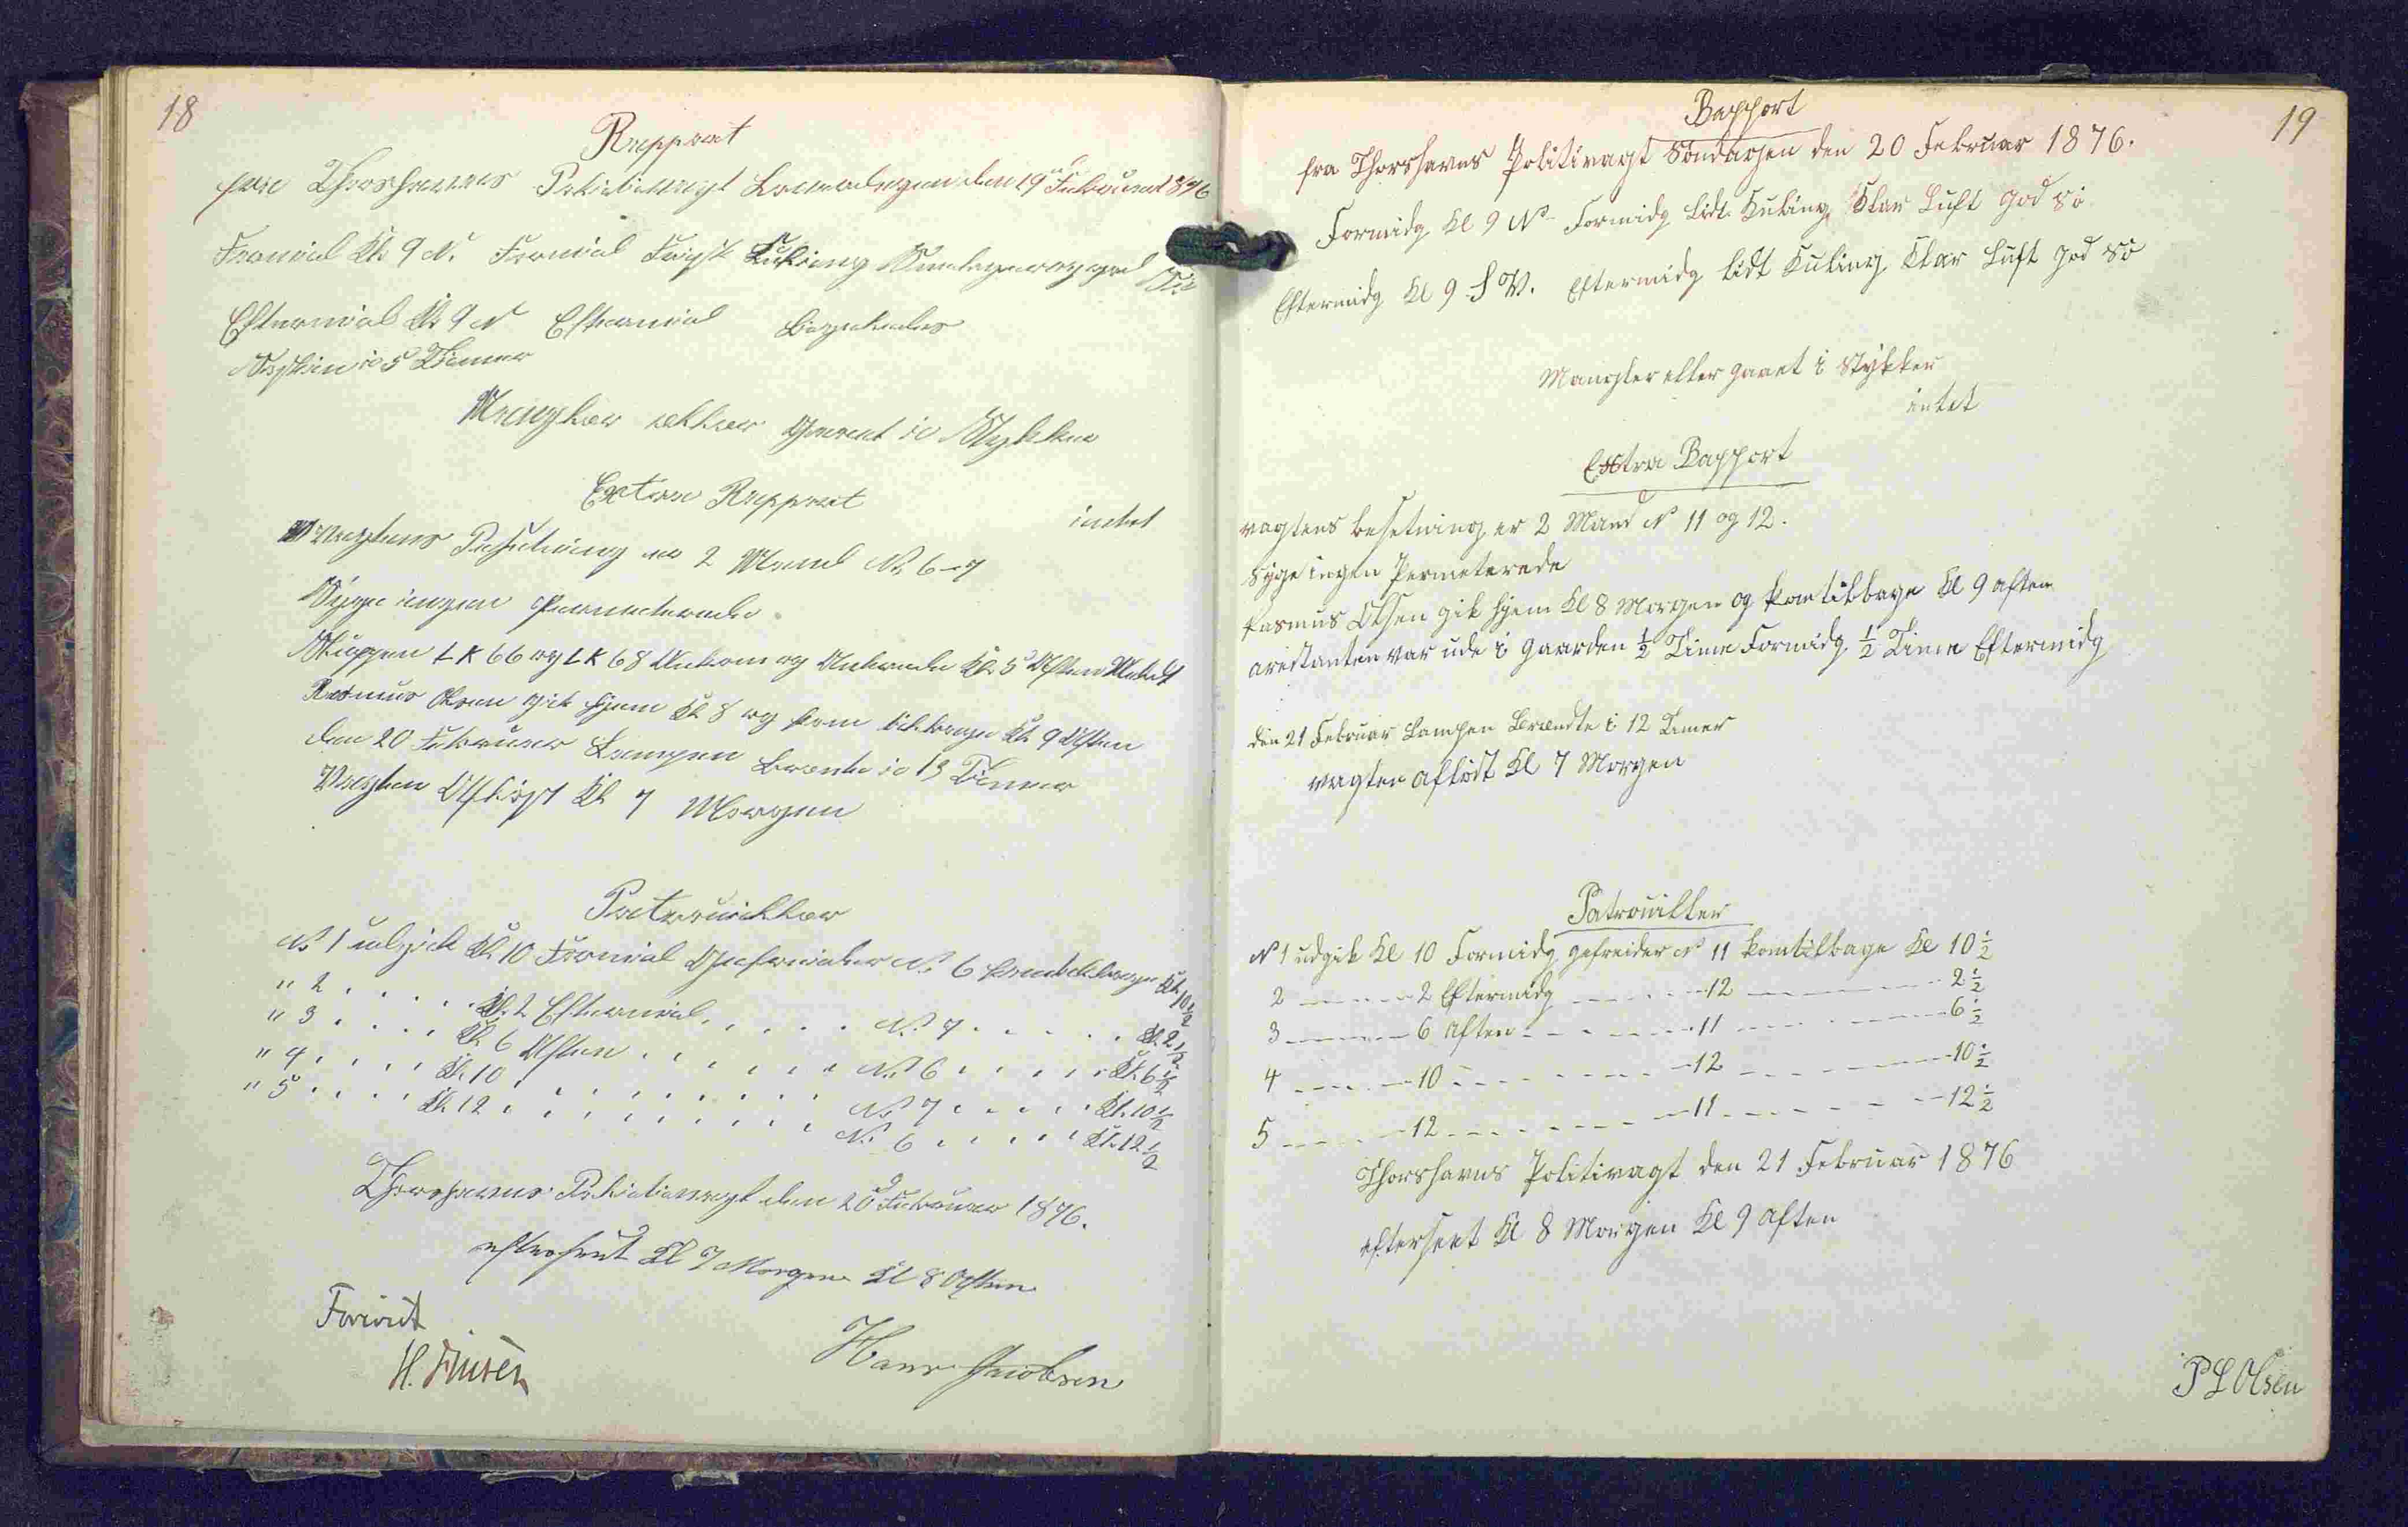 18
Rapport
fra Thorshavns Politivagt Løverdagen den 19 Februar 1876
Formid Kl 9 N. Formid Frisk Kuling
Eftermid Kl 9 N Eftermid Ligeledes
i 5 Timer
Mangler eller Gaaet i Stykker
intet
Extra Rapport
Vagtens Besetning er 2 Mand No 6-7
Syge ingen Permeterede
LK 66 og LK 68 Ankom og Ankrede Kl 5 Aften
Rasmus Olsen gik hjem Kl 8 og kom tilbage Kl 9 Aften
den 20 Februar Lampen brænte i 13 Timer
Vagten Afløst Kl 7 Morgen
Patrouiller
No 1 udgik Kl 10 Formid Gefreider No 6 kom tilbage Kl 10 1/2
" 2 . . . . . Kl. 2 Eftermid. . . . . No 7 . . . . . Kl. 2 1/2
" 3 . . . . Kl. 6 Aften . . . . . . No 6 . . . . . Kl. 6 1/2
" 4 . . . . . Kl. 10 . . . . . . . . No 7 . . . . . Kl. 10 1/2
" 5 . . . . . Kl. 12 . . . . . . . . No 6 . . . . . Kl. 12 1/2
Thorshavns Politivagt den 20 Februar 1876.
efterseet Kl 7 Morgen Kl 8 Aften
Forevist
H. Finsen
Hans Jacobsen
19
Rapport
fra Thorshavns Politivagt Søndagen den 20 Februar 1876.
Formidg Kl 9 N Formidg lidt Kuling Klar Luft god Sø
Eftermidg Kl 9 S V. Eftermidg lidt Kuling Klar Luft god Sø
Mangler eller gaaet i Stykker
intet
Extra Rapport
vagtens besetning er 2 Mand N 11 og 12.
Syge ingen Permeterede
Rasmus Olsen gik hjem Kl 8 Morgen og kom tilbage Kl 9 aften
arestanten var ude i Gaarden 1/2 Time Formidg 1/2 Time Eftermidg
den 21 Februar Lampen Brændte i 12 Timer
vagten afløst Kl 7 Morgen
Patrouiller
N 1 udgik Kl 10 Formidg gefreider N 11 kom tilbage Kl 10 1/2
2 - - - - 2 Eftermidg - - - - 12 - - - - 2 1/2
3 - - - - 6 Aften - - - - 11 - - - - 6 1/2
4 - - - - 10 - - - - 12 - - - - 10 1/2
5 - - - - 12 - - - - 11 - - - - 12 1/2
Thorshavns Politivagt den 21 Februar 1876
efterseet Kl 8 Morgen Kl 9 aften
P L Olsen